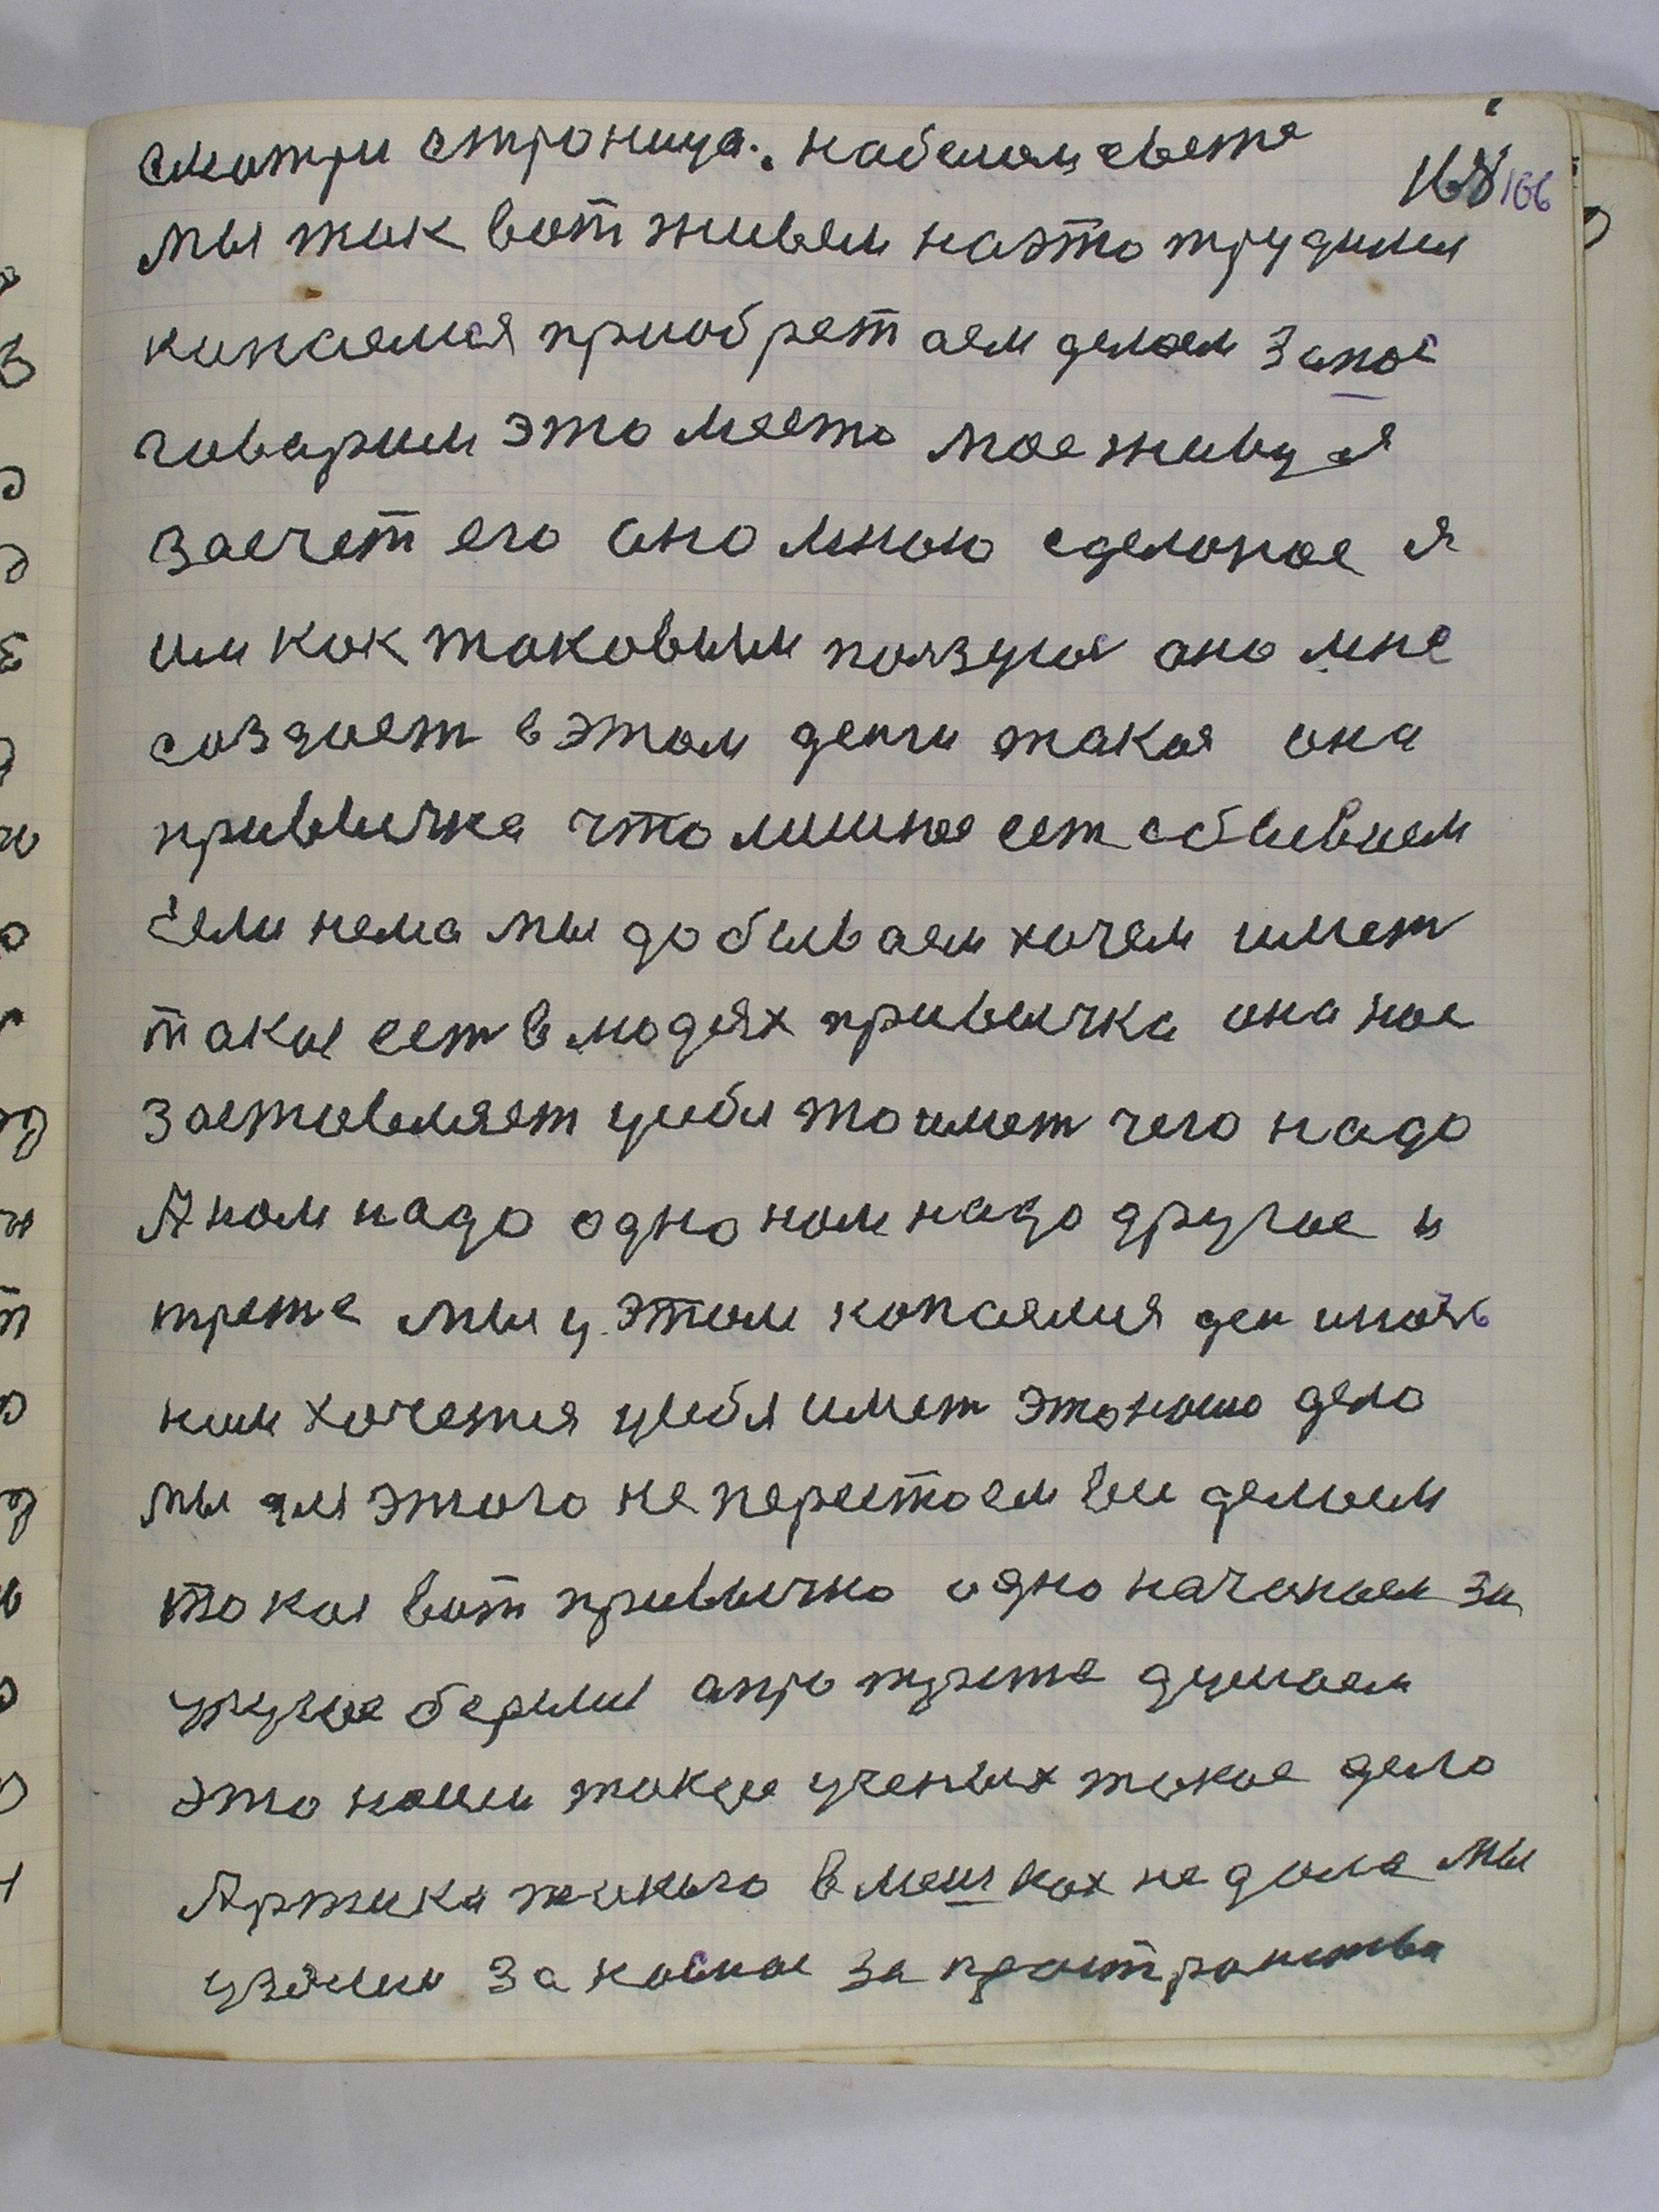 смотри строница. набелам свете
168 166
мы так вот живем наэто трудимся
копаемся приобретаем делаем запас
говарим это место мое живу я
засчет его оно мною сделоное я
им как таковым ползуюс оно мне
создает в этом денги такая она
привычка что лишнее ест сбываем
Если нема мы добываем хочем имет
такая ест в людях привычка она нас
заставляет усебя то имет чего надо
А нам надо одно нам надо другое и
трете мы у этом копаемся ден иночь
ним хочется усебя имет это ношо дело
мы для этого не перестаем все делаем
токая вот привычка одно начанаем за
другое беремся апро трете думаем
это наши такие ученых такое дело
Артика такого в мешках не дола мы
узялис за космос за пространства